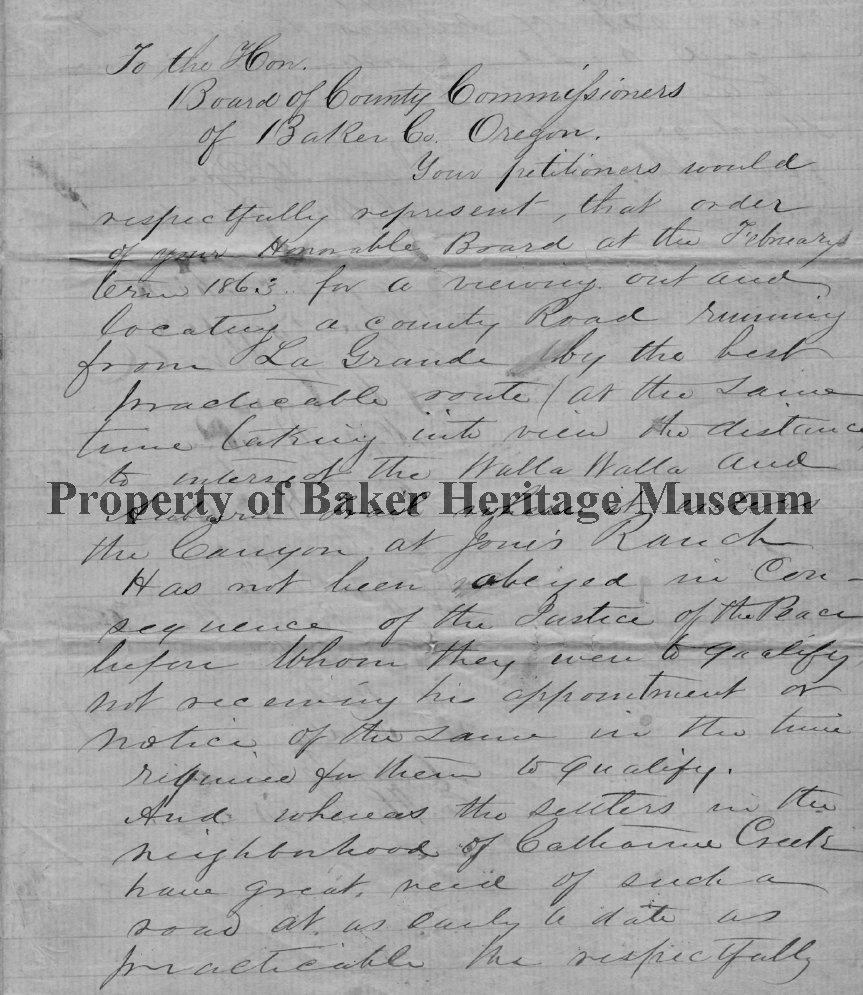 To the Hon.
Board of County Commissioners
of Baker Co. Oregon.
Your petitioners would
respectfully represent, that order
of your Honorable Board at the February
term 1863 for a viewing out and
locating a county Road running
from La Grande by the best
practicable route (at the same
time taking into view the distance
to intersect the Walla Walla and
Property of Baker Heritage Museum
Auburn Trail when it
the Canyon at Jone's Ranch
Has not been obeyed in Con-
sequence of the Justice of the Peace
before Whom they were to qualify
not receiving his appointment or
notice of the same in the time
required for them to qualify.
And whereas the settlers in the
neighborhood of Catharine Creek
have great need of such a
road at as early a date as
practicable the respectfully